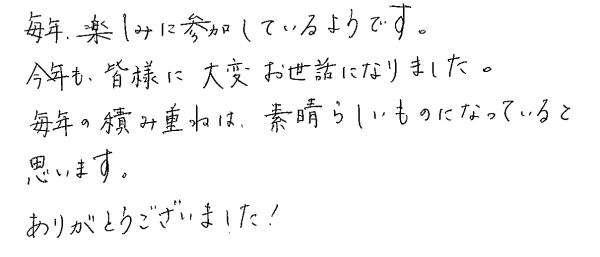 毎年、楽しみに参加しているようです。
今年も、皆様に大変お世話になりました。
毎年の積み重ねは、素晴らしいものになっていると
思います。
ありがとうございました！